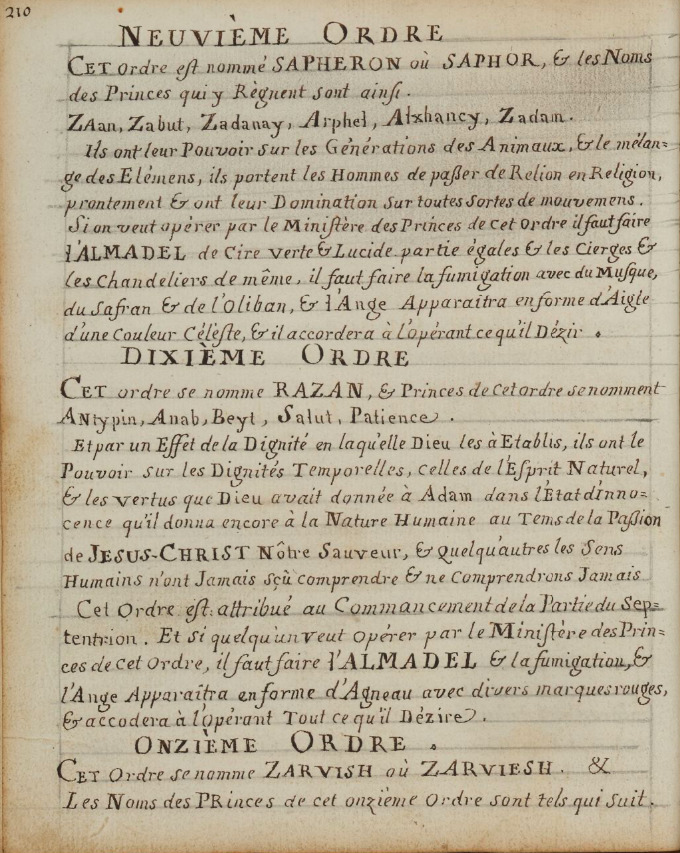 210
NEUVIÈME ORDRE
CET ordre est nommé SAPHERON où SAPHOR, & les Noms
des Princes qui y Règnent sont ainsi.
ZAan, Zabut, Zadanay, Arphel, Alxhancy, Zadam.
Ils ont leur Pouvoir sur les Générations des Animaux, & le mélan=
ge des Elémens, ils portent les Hommes de passer de Relion en Religion,
prontement & ont leur Domination sur toutes sortes de mouvemens.
Si on veut opérer par le Ministère des Princes de cet ordre il faut faire
l'ALMADEL de Cire verte & Lucide partie égales & les Cierges &
les Chandeliers de même, il faut faire la fumigation avec du Musque,
du Safran & de l'Oliban, & l'Ange Apparaîtra en forme d'Aigle
d'une Couleur Céleste, & il accordera à l'opérant ce qu'il Dézir.
DIXIÈME ORDRE
CET ordre se nomme RAZAN, & Princes de Cet ordre se nomment
ANtypin, Anab, Beyt, Salut, Patience.
Et par un Effet de la Dignité en laqu'elle Dieu les à Etablis, ils ont le
Pouvoir sur les Dignités Temporelles, celles de l'Esprit Naturel,
& les vertus que Dieu avait donnée à Adam dans l'Etat d'Inno=
cence qu'il donna encore à la Nature Humaine au Tems de la Passion
de JESUS-CHRIST Nôtre Sauveur, & quelqu'autres les Sens
Humains n'ont Jamais sçù comprendre & ne Comprendrons Jamais
Cet Ordre est attribué au Commancement de la Partie du Sep=
tentrion. Et si quelqu'un veut opérer par le Ministère des Prin=
ces de cet Ordre, il faut faire l'ALMADEL & la fumigation, &
l'Ange Apparaîtra en forme d'Agneau avec divers marques rouges,
& accodera à l'opérant Tout ce qu'il Dézire.
ONZIÈME ORDRE.
CET Ordre se nomme ZARVISH où ZARVIESH. &
Les Noms des PRinces de cet onzième Ordre sont tels qui suit.